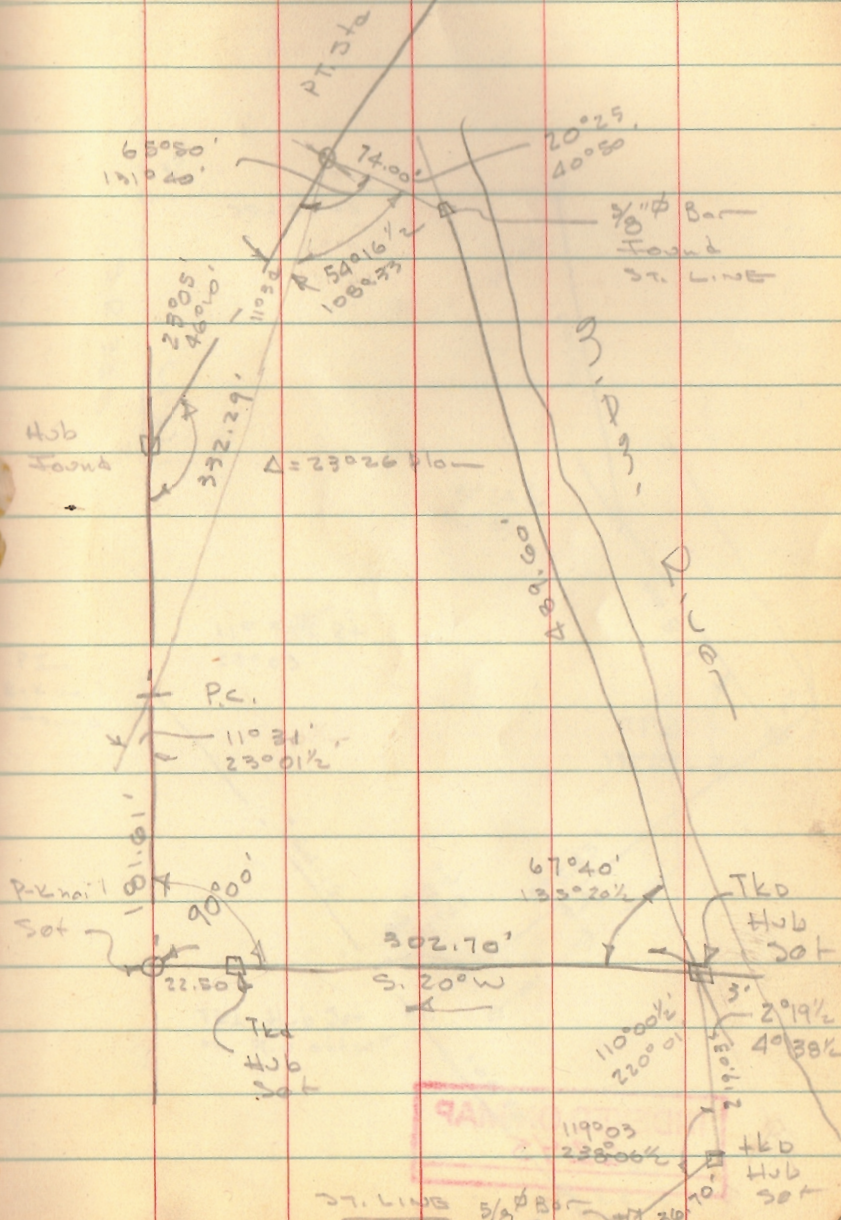 PT. Sta
65°50'
131°40'
74.00'
20°25'
40°50'
5/8"Ø Bar
Found
ST. LINE
54°16 1/2
108°33
11°30
332.29'
Hub
Found
Δ = 23°26
489.60'
River
P.C.
11°31'
23°01 1/2'
181.61'
P-K nail
Set
90°00'
67°40'
135°20 1/2
Tkd
Hub
Set
302.70'
S. 20° W
22.50
Tkd
Hub
Set
3'
2°19 1/2
4°38 1/2
110°00 1/2'
220°01'
119°03
238°06 1/2
tkd
Hub
Set
ST. LINE
5/8"Ø Bar